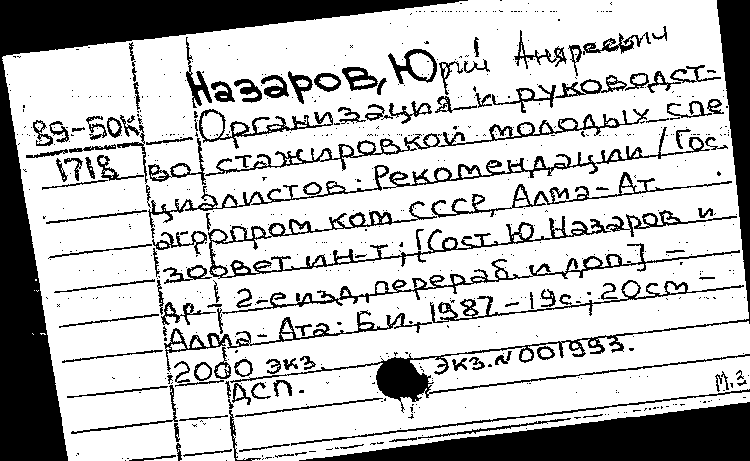 Назаров, Юрий Андреевич
89-БОК
1718
Организация и руководст-
во стажировкой молодых спе
циалистов: Рекомендации / Гос.
агропром. ком СССР, Алма-Ат.
зоовет. ин-т; [Сост. Ю. Назаров и
др. - 2-е изд., перераб. и доп.] -
Алма-Ата: Б.и., 1987. - 19с.; 20см -
2000 экз. экз. N 001993.
ДСП.
М.З